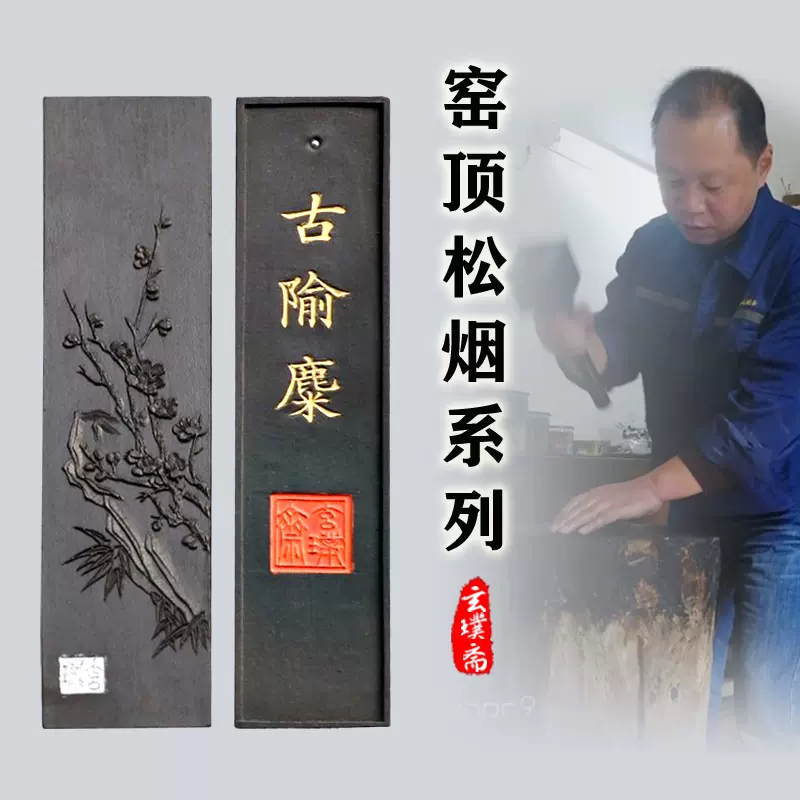 古隃麋
玄璞斋
窑顶松烟系列
玄璞斋